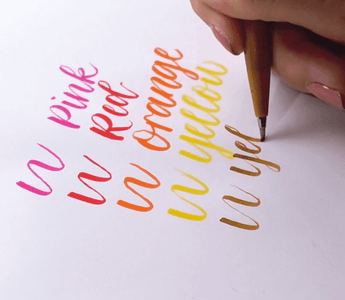 Pink
Red
Orange
yellow
yel